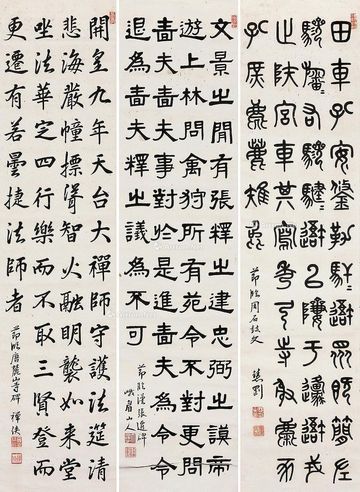 田車孔安鋚勒
右驂
吾以隮于邍吾戎
止陕宮車其寫秀弓寺射麋豕
孔庶麀鹿雉兔
節臨周石鼓文
文景之間有張釋之忠弼之謨帝
遊上林問禽狩所有苑令不對更問
嗇夫嗇夫事對於是進嗇夫為令令
退為嗇夫釋之議為不可
節臨漢張遷碑
峨眉山人
開皇九年天台大禪師守護法筵清
悲海嚴幢標聳智火融明襲如来堂
坐法華定四行樂而不取三賢登而
更遷有若曇捷法師者
節臨唐麓山寺碑 禪俠